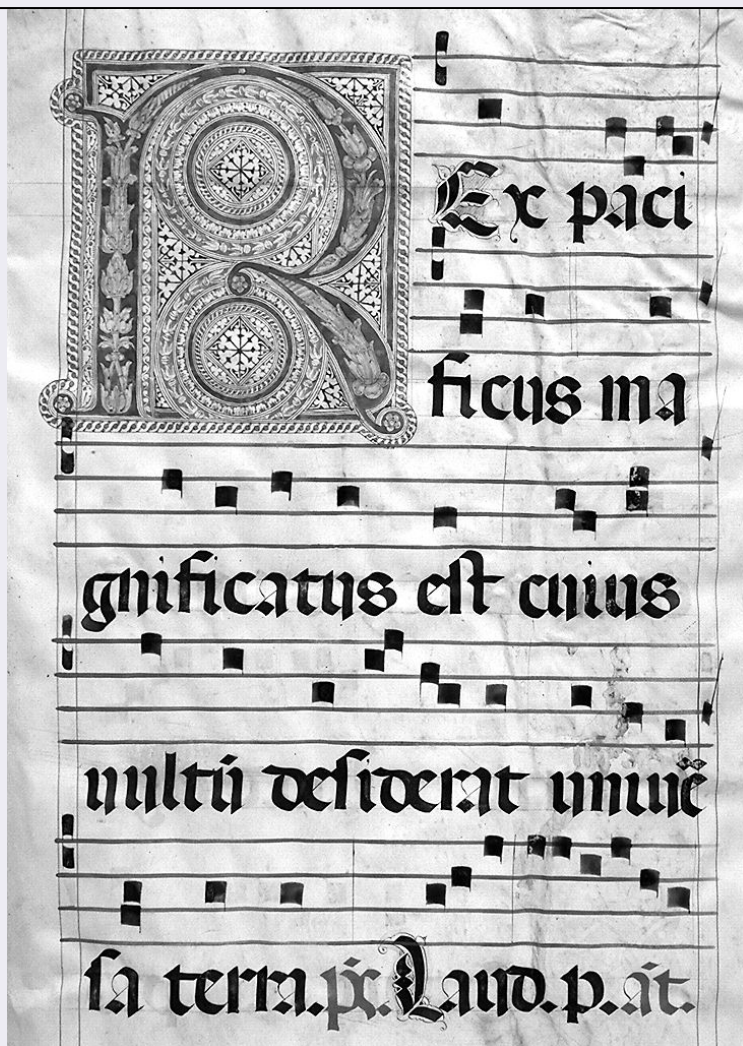 REx paci
ficus ma
gnificatus est cuius
uultū desiderat uniuē
sa terra. ps. Laud. p. āt.